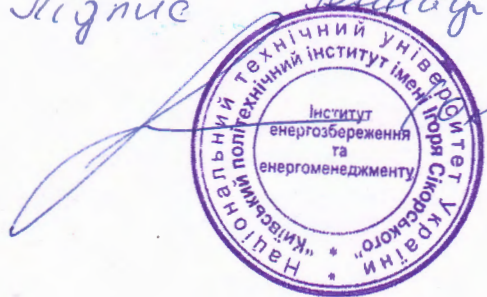 Підпис
Національний технічний університет України *
"Київський політехнічний інститут імені Ігоря Сікорського" *
Інститут
енергозбереження
та
енергоменеджменту